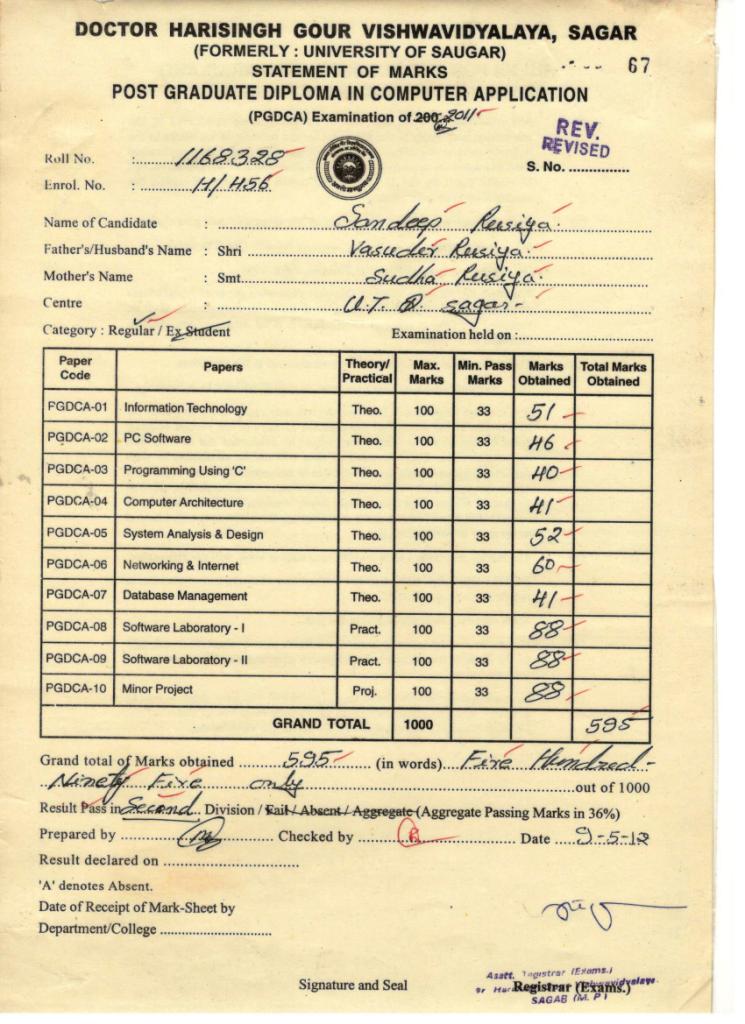 DOCTOR HARISINGH GOUR VISHWAVIDYALAYA, SAGAR
(FORMERLY : UNIVERSITY OF SAUGAR)
STATEMENT OF MARKS
67
POST GRADUATE DIPLOMA IN COMPUTER APPLICATION
(PGDCA) Examination of 200 2011
REV.
REVISED
Roll No. : 1168328
S. No. ...............
Enrol. No. : H/456
Name of Candidate : Sandeep Rusiya
Father's/Husband's Name : Shri Vasudev Rusiya
Mother's Name : Smt. Sudha Rusiya
Centre : U.T.D. Sagar
Category : Regular / Ex Student Examination held on :
Paper Code Papers Theory/ Practical Max. Marks Min. Pass Marks Marks Obtained Total Marks Obtained
PGDCA-01 Information Technology Theo. 100 33 51
PGDCA-02 PC Software Theo. 100 33 46
PGDCA-03 Programming Using 'C' Theo. 100 33 40
PGDCA-04 Computer Architecture Theo. 100 33 41
PGDCA-05 System Analysis & Design Theo. 100 33 52
PGDCA-06 Networking & Internet Theo. 100 33 60
PGDCA-07 Database Management Theo. 100 33 41
PGDCA-08 Software Laboratory - I Pract. 100 33 88
PGDCA-09 Software Laboratory - II Pract. 100 33 88
PGDCA-10 Minor Project Proj. 100 33 88
GRAND TOTAL 1000 595
Grand total of Marks obtained 595 (in words) Five Hundred-
Ninety Five only out of 1000
Result Pass in Second Division / Fail / Absent / Aggregate (Aggregate Passing Marks in 36%)
Prepared by Checked by Date 9-5-12
Result declared on
'A' denotes Absent.
Date of Receipt of Mark-Sheet by
Department/College
Signature and Seal
Asstt. Registrar (Exams.)
Registrar (Exams.)
Vishwavidyalaya
SAGAR (M.P.)